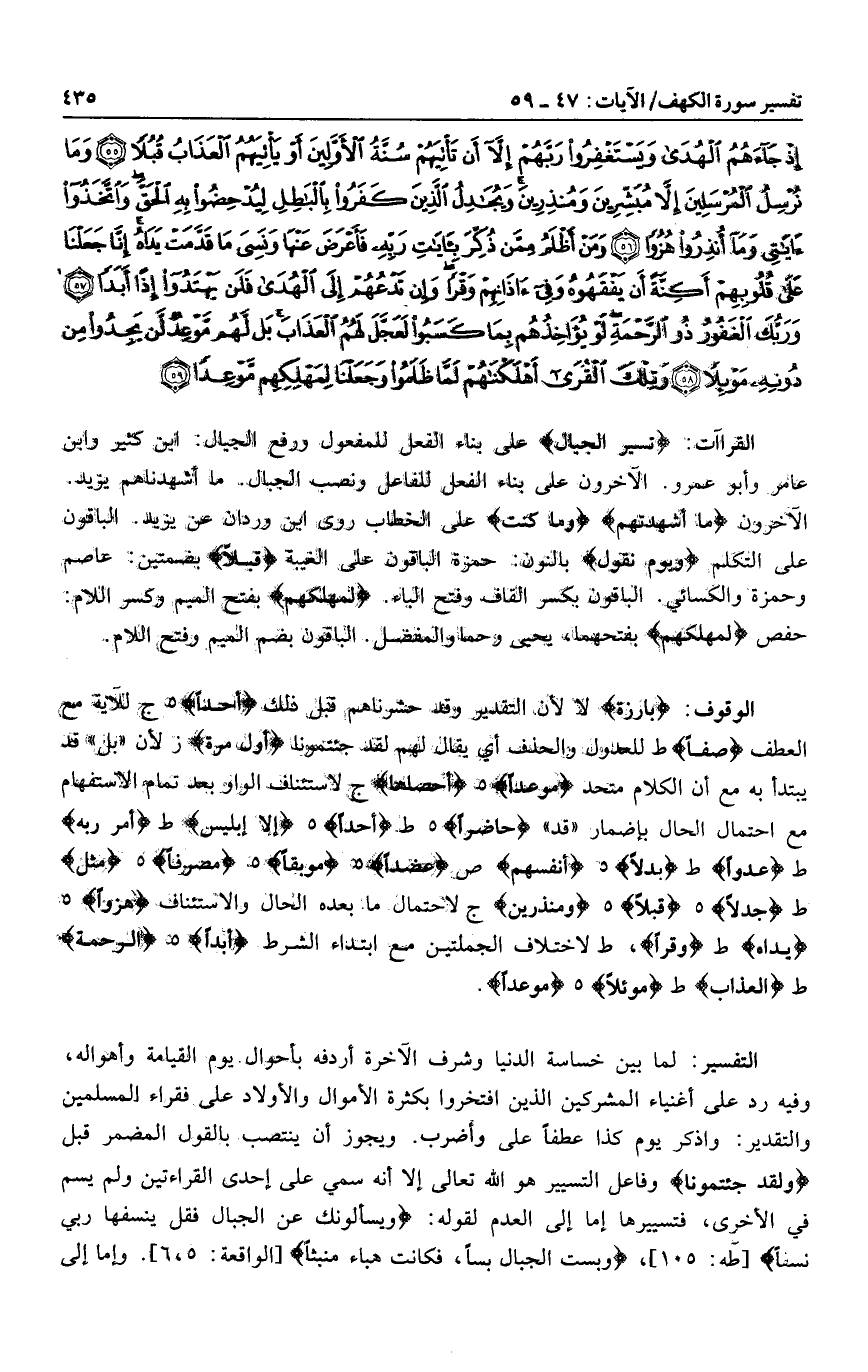 تفسير سورة الكهف/ الآيات: ٤٧ ـ ٥٩ ٤٣٥
إِذْ جَآءَهُمُ ٱلْهُدَىٰ وَيَسْتَغْفِرُوا۟ رَبَّهُمْ إِلَّآ أَن تَأْتِيَهُمْ سُنَّةُ ٱلْأَوَّلِينَ أَوْ يَأْتِيَهُمُ ٱلْعَذَابُ قُبُلًا ۝٥٥ وَمَا
نُرْسِلُ ٱلْمُرْسَلِينَ إِلَّا مُبَشِّرِينَ وَمُنذِرِينَ ۚ وَيُجَـٰدِلُ ٱلَّذِينَ كَفَرُوا۟ بِٱلْبَـٰطِلِ لِيُدْحِضُوا۟ بِهِ ٱلْحَقَّ ۖ وَٱتَّخَذُوٓا۟
ءَايَـٰتِى وَمَآ أُنذِرُوا۟ هُزُوًا ۝٥٦ وَمَنْ أَظْلَمُ مِمَّن ذُكِّرَ بِـَٔايَـٰتِ رَبِّهِۦ فَأَعْرَضَ عَنْهَا وَنَسِىَ مَا قَدَّمَتْ يَدَاهُ ۚ إِنَّا جَعَلْنَا
عَلَىٰ قُلُوبِهِمْ أَكِنَّةً أَن يَفْقَهُوهُ وَفِىٓ ءَاذَانِهِمْ وَقْرًا ۖ وَإِن تَدْعُهُمْ إِلَى ٱلْهُدَىٰ فَلَن يَهْتَدُوٓا۟ إِذًا أَبَدًا ۝٥٧
وَرَبُّكَ ٱلْغَفُورُ ذُو ٱلرَّحْمَةِ ۖ لَوْ يُؤَاخِذُهُم بِمَا كَسَبُوا۟ لَعَجَّلَ لَهُمُ ٱلْعَذَابَ ۚ بَل لَّهُم مَّوْعِدٌ لَّن يَجِدُوا۟ مِن
دُونِهِۦ مَوْئِلًا ۝٥٨ وَتِلْكَ ٱلْقُرَىٰٓ أَهْلَكْنَـٰهُمْ لَمَّا ظَلَمُوا۟ وَجَعَلْنَا لِمَهْلِكِهِم مَّوْعِدًا ۝٥٩
القراآت: ﴿تسير الجبال﴾ على بناء الفعل للمفعول ورفع الجبال: ابن كثير وابن
عامر وأبو عمرو. الآخرون على بناء الفعل للفاعل ونصب الجبال. ما أشهدناهم يزيد.
الآخرون ﴿ما أشهدتهم﴾ ﴿وما كنت﴾ على الخطاب روى ابن وردان عن يزيد. الباقون
على التكلم ﴿ويوم نقول﴾ بالنون: حمزة الباقون على الغيبة ﴿قبلاً﴾ بضمتين: عاصم
وحمزة والكسائي. الباقون بكسر القاف وفتح الباء. ﴿لمهلكهم﴾ بفتح الميم وكسر اللام:
حفص ﴿لمهلكهم﴾ بفتحهما، يحيى وحماد والمفضل. الباقون بضم الميم وفتح اللام.
الوقوف: ﴿بارزة﴾ لا لأن التقدير وقد حشرناهم قبل ذلك ﴿أحداً﴾ ٥ ج للآية مع
العطف ﴿صفاً﴾ ط للعدول والحذف أي يقال لهم لقد جئتمونا ﴿أول مرة﴾ ز لأن «بل» قد
يبتدأ به مع أن الكلام متحد ﴿موعداً﴾ ٥ ﴿أحصاها﴾ ج لاستئناف الواو بعد تمام الاستفهام
مع احتمال الحال بإضمار «قد» ﴿حاضراً﴾ ٥ ط ﴿أحداً﴾ ٥ ﴿إلا إبليس﴾ ط ﴿أمر ربه﴾
ط ﴿عدواً﴾ ط ﴿بدلاً﴾ ٥ ﴿أنفسهم﴾ ص ﴿عضداً﴾ ٥ ﴿موبقاً﴾ ٥ ﴿مصرفاً﴾ ٥ ﴿مثل﴾
ط ﴿جدلاً﴾ ٥ ﴿قبلاً﴾ ٥ ﴿ومنذرين﴾ ج لاحتمال ما بعده الحال والاستئناف ﴿هزوا﴾ ٥
﴿يداه﴾ ط ﴿وقراً﴾، ط لاختلاف الجملتين مع ابتداء الشرط ﴿أبداً﴾ ٥ ﴿الرحمة﴾
ط ﴿العذاب﴾ ط ﴿موئلاً﴾ ٥ ﴿موعداً﴾.
التفسير: لما بين خساسة الدنيا وشرف الآخرة أردفه بأحوال يوم القيامة وأهواله،
وفيه رد على أغنياء المشركين الذين افتخروا بكثرة الأموال والأولاد على فقراء المسلمين
والتقدير: واذكر يوم كذا عطفاً على وأضرب. ويجوز أن ينتصب بالقول المضمر قبل
﴿ولقد جئتمونا﴾ وفاعل التسيير هو الله تعالى إلا أنه سمي على إحدى القراءتين ولم يسم
في الأخرى، فتسييرها إما إلى العدم لقوله: ﴿ويسألونك عن الجبال فقل ينسفها ربي
نسفاً﴾ [طه: ١٠٥]، ﴿وبست الجبال بساً، فكانت هباء منبثاً﴾ [الواقعة: ٦،٥]. وإما إلى